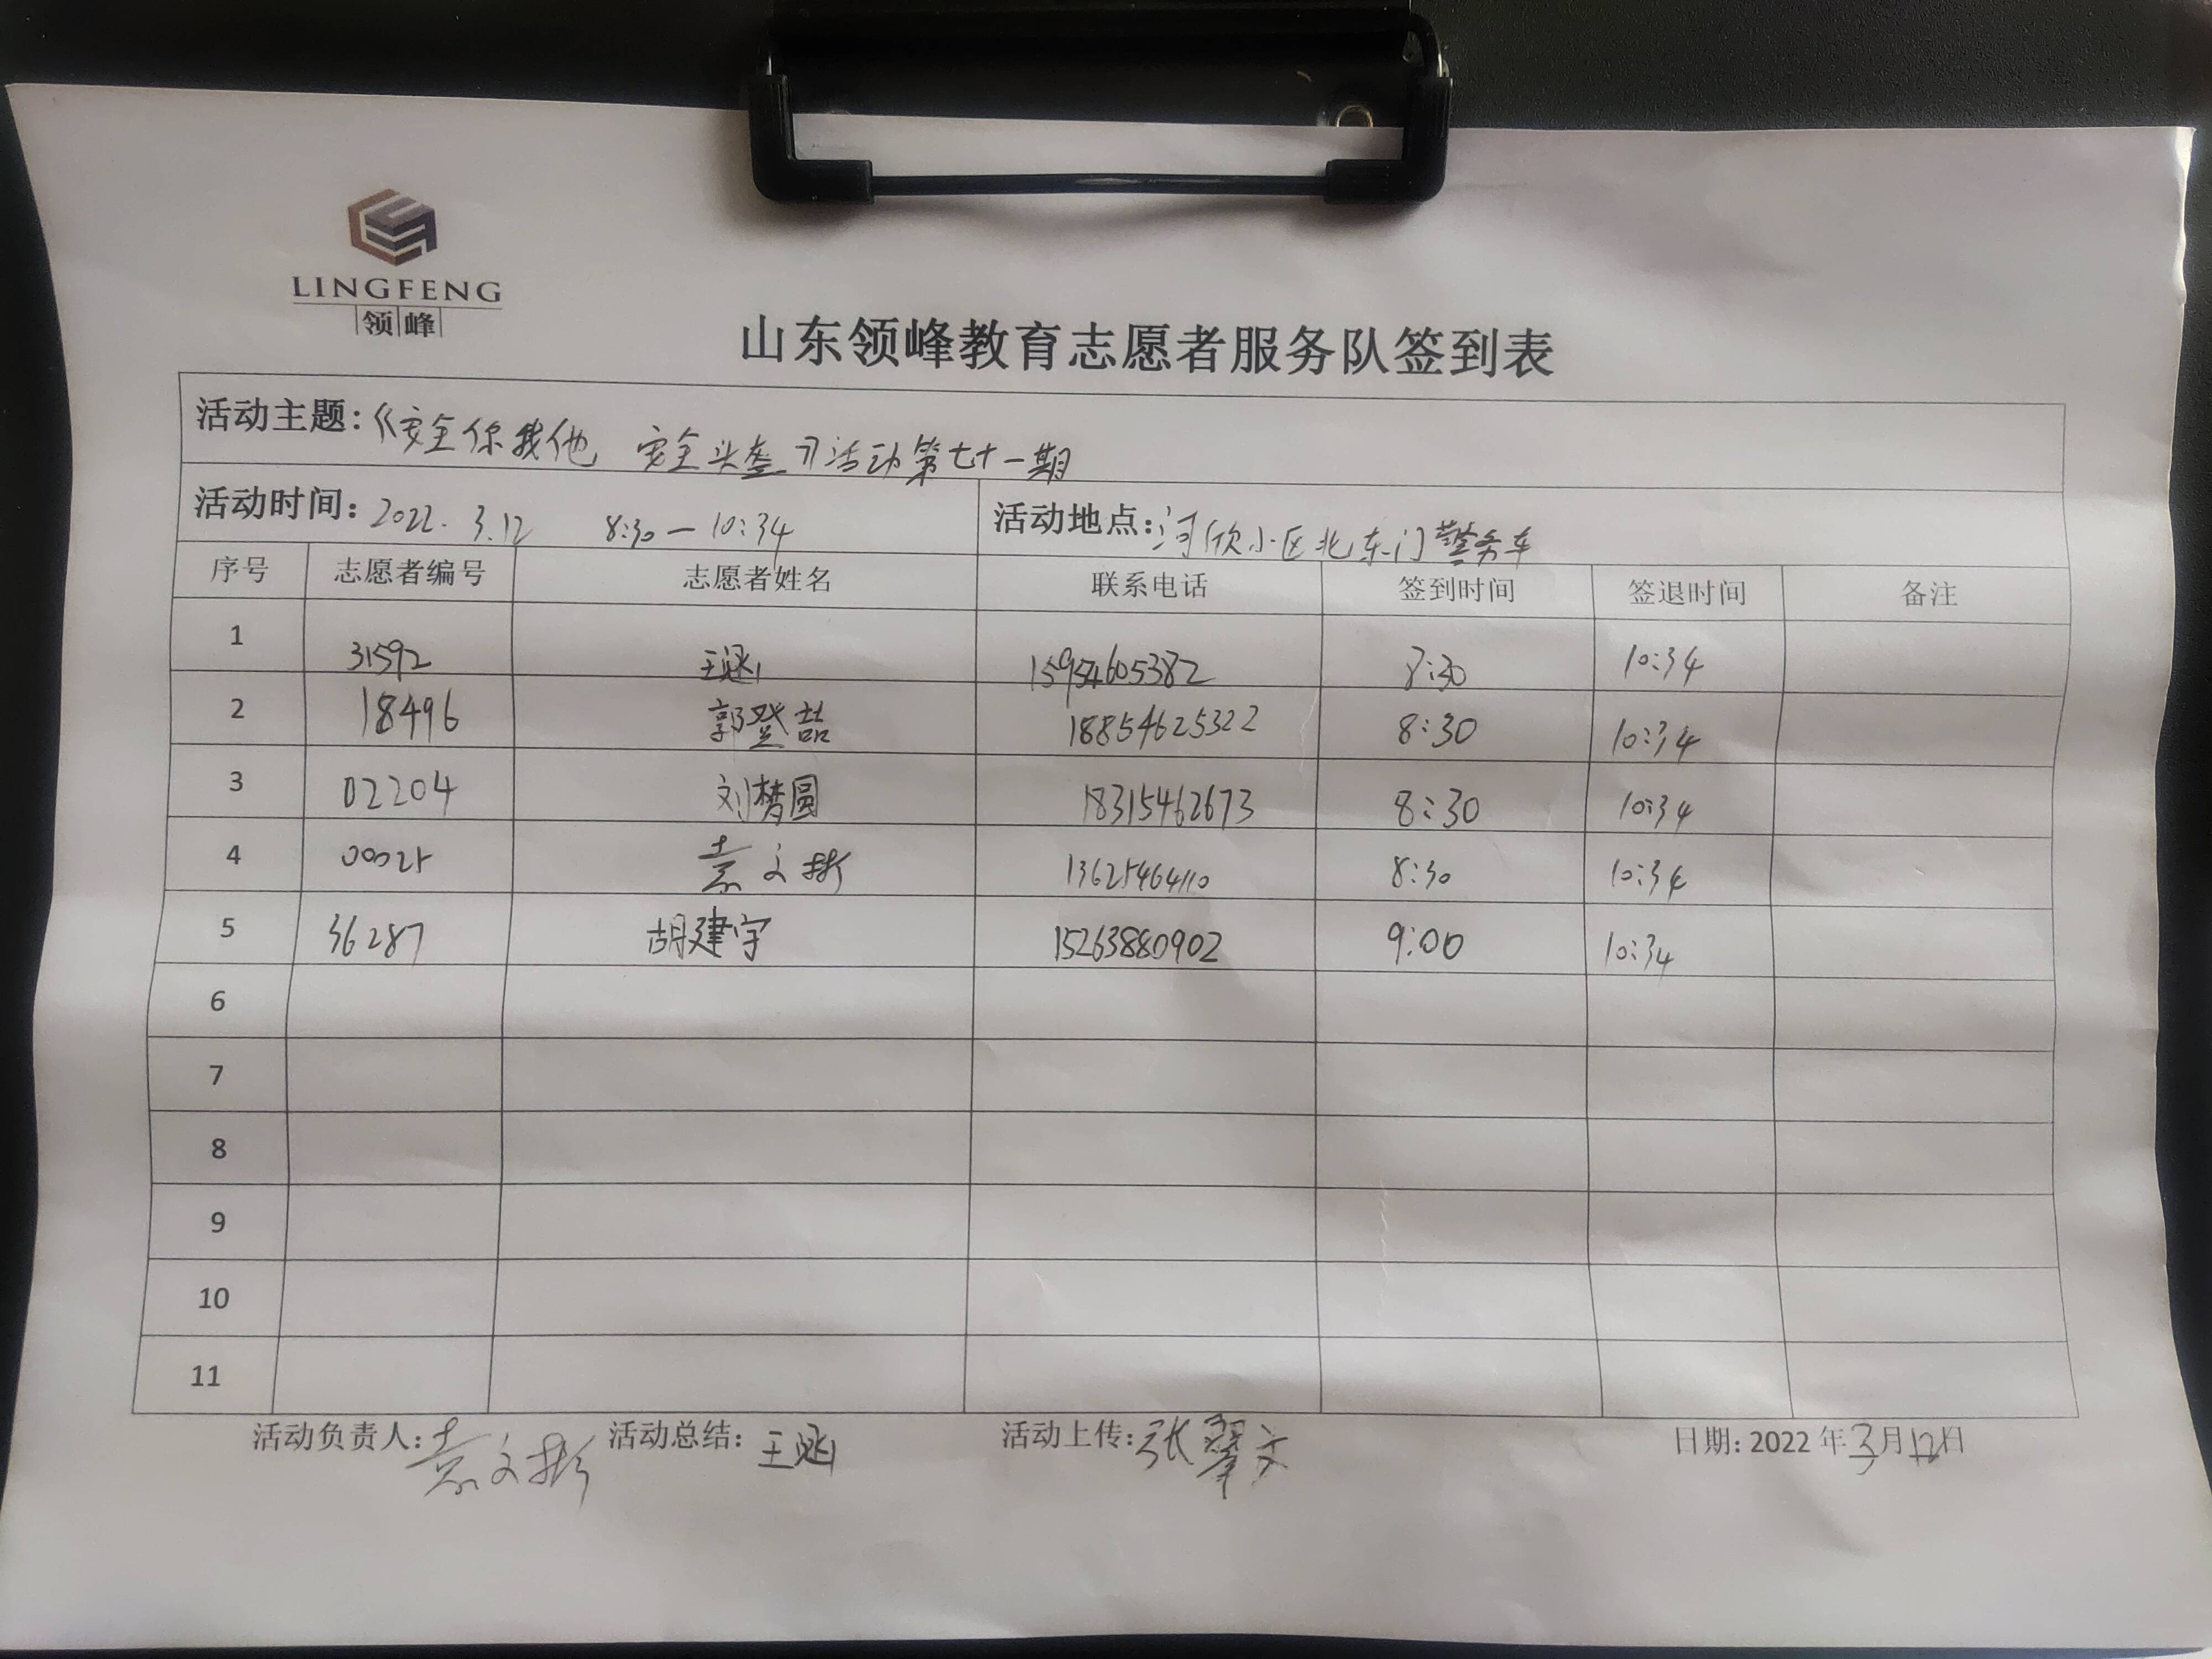 LINGFENG
领峰
山东领峰教育志愿者服务队签到表
活动主题:《安全你我他 安全头盔》活动第七十一期
活动时间:2022.3.12 8:30—10:34 活动地点:河欣小区北东门警务车
序号 志愿者编号 志愿者姓名 联系电话 签到时间 签退时间 备注
1 31592 王 15954605382 8:30 10:34
2 18496 郭登喆 18854625322 8:30 10:34
3 02204 刘梦圆 18315462673 8:30 10:34
4 00025 袁文彬 13625464110 8:30 10:34
5 36287 胡建宇 15263880902 9:00 10:34
6
7
8
9
10
11
活动负责人:袁文彬 活动总结:王 活动上传:张翠文 日期:2022年3月12日